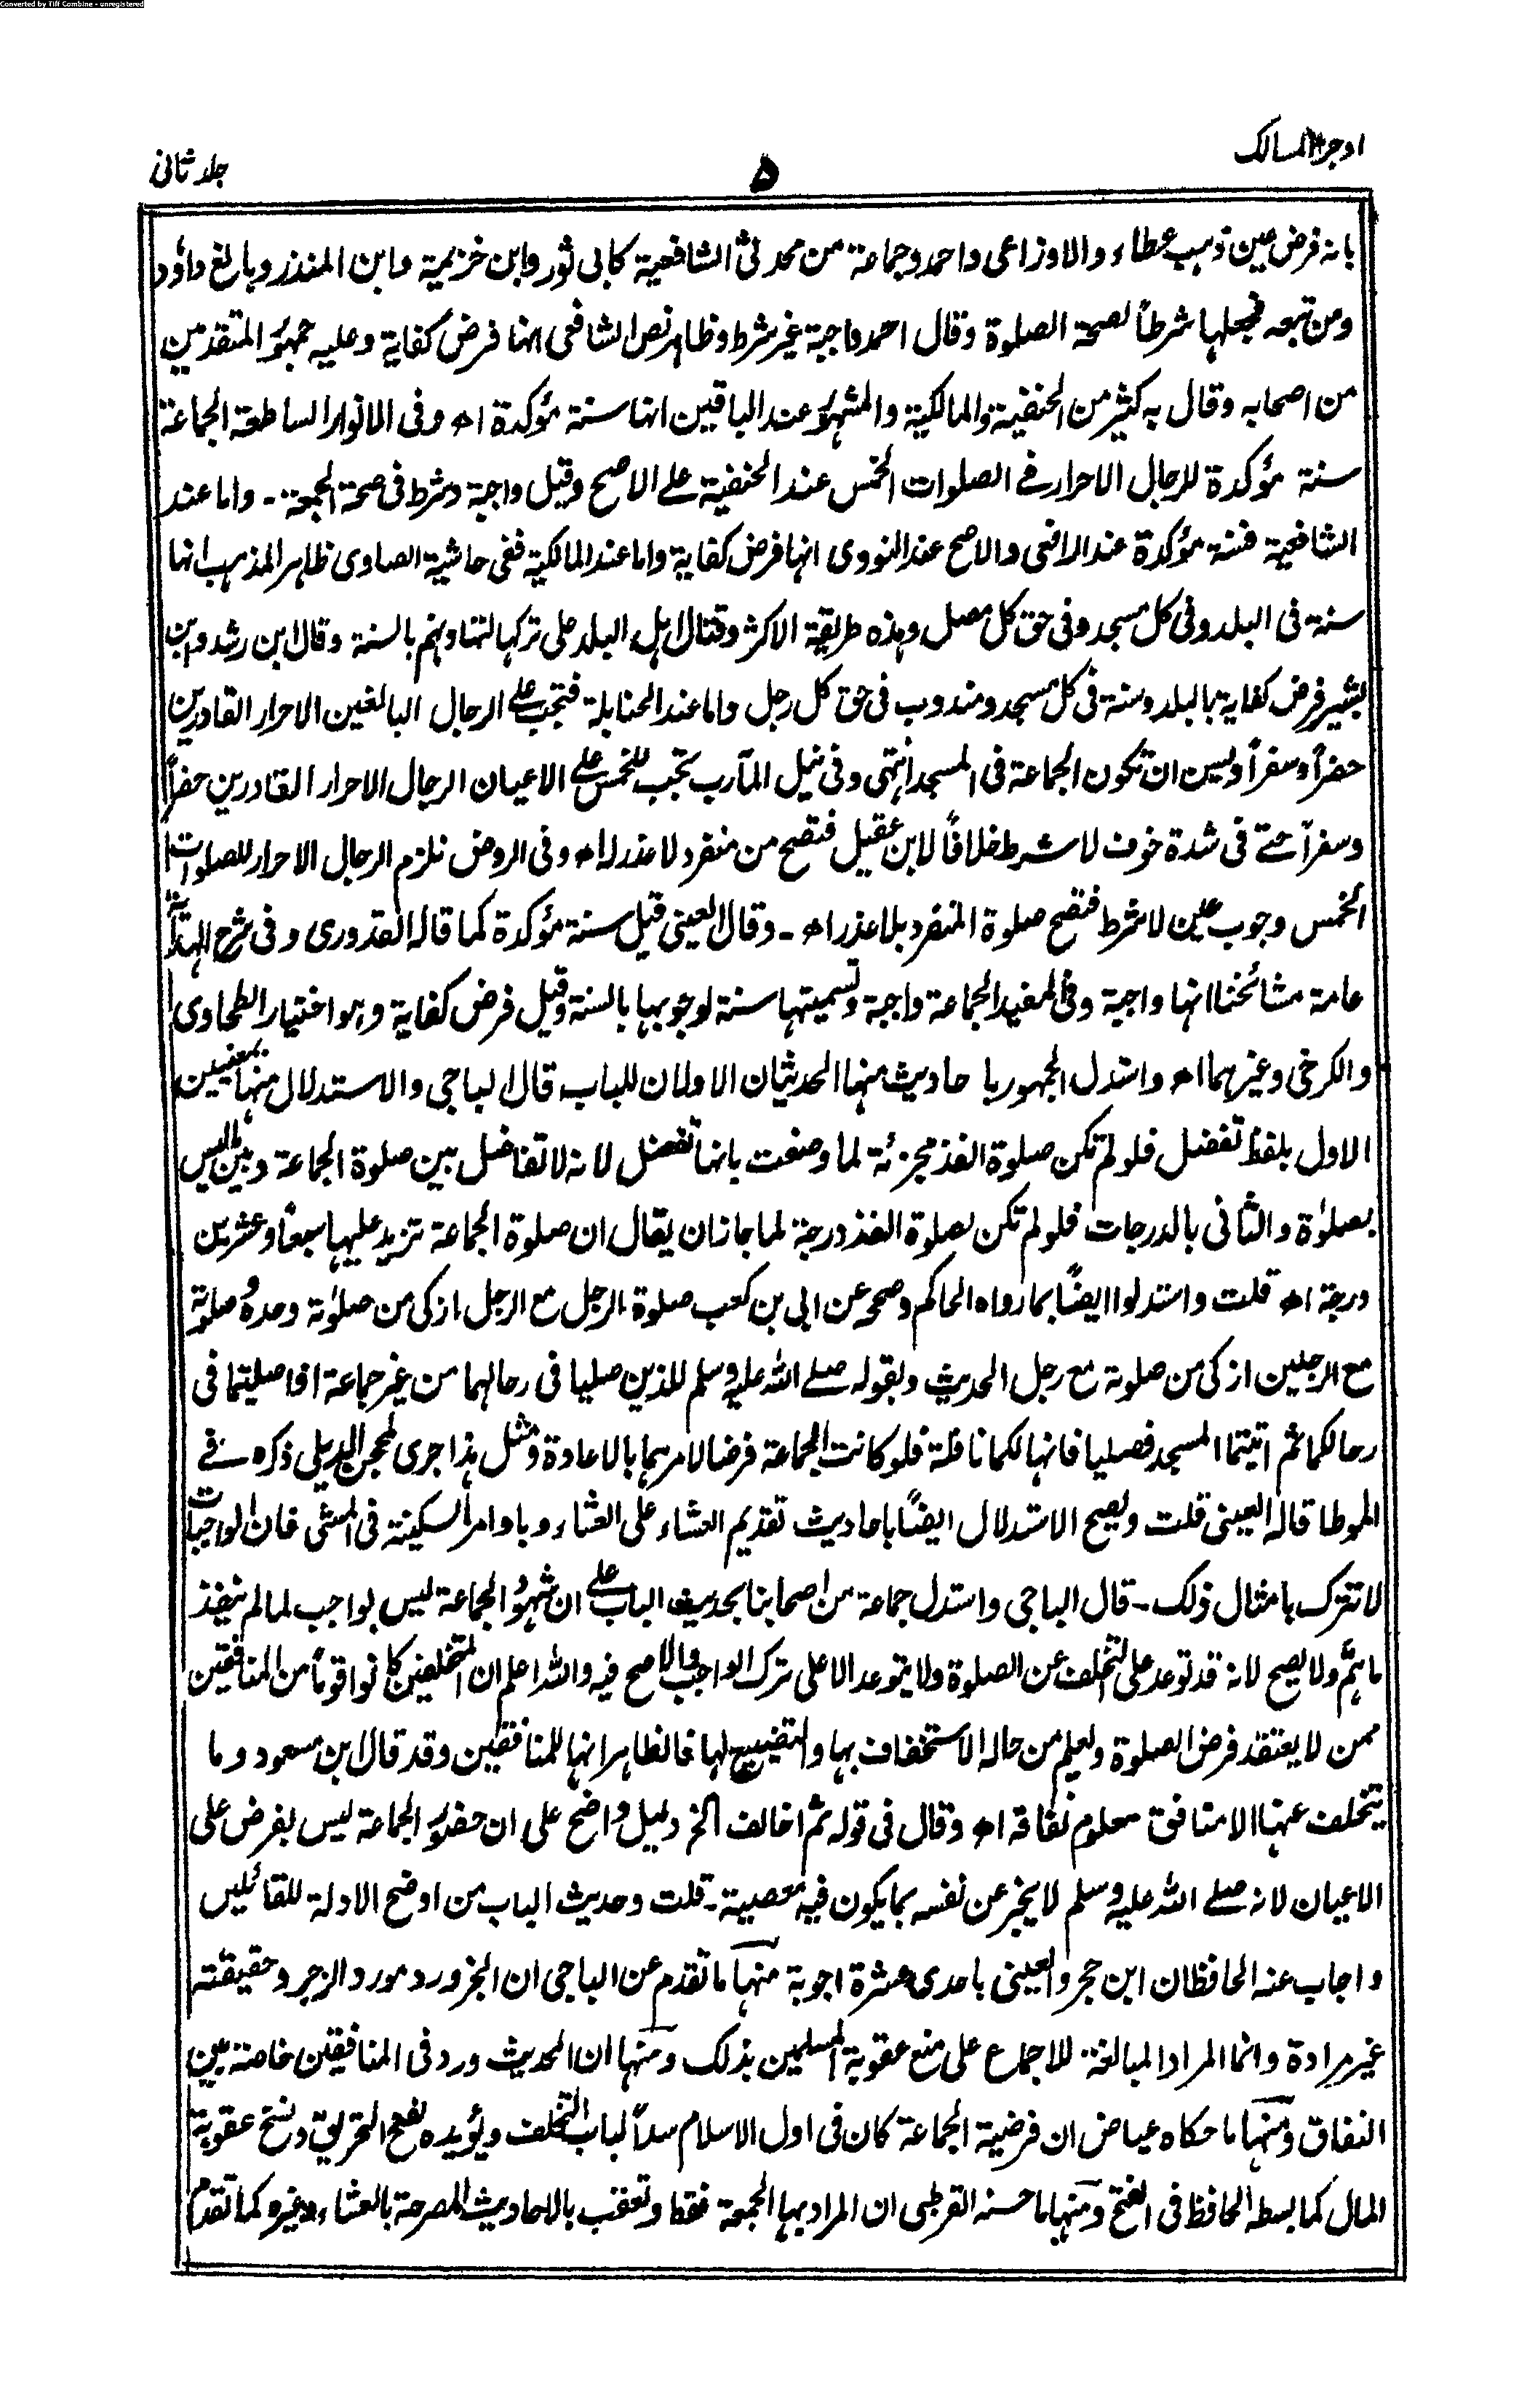 Converted by Tiff Combine - unregistered
اوجز المسالك
۵
جلد ثانی
بانه فرض عين ذهب عطاء والاوزاعى واحمد وجماعة من محدثى الشافعية كابى ثور وابن خزيمة وابن المنذر وبالغ داؤد
ومن تبعه فجعلها شرطاً لصحة الصلوة وقال احمد واجبة غير شرط وظاهر نص الشافعى انها فرض كفاية وعليه جمهور المتقدمين
من اصحابه وقال به كثير من الحنفية والمالكية والمشهور عند الباقين انها سنة مؤكدة اھ وفى الانوار الساطعة الجماعة
سنة مؤكدة للرجال الاحرار فى الصلوات الخمس عند الحنفية على الاصح وقيل واجبة وشرط فى صحة الجمعة - واما عند
الشافعية فسنة مؤكدة عند الرافعى والاصح عند النووى انها فرض كفاية واما عند المالكية ففى حاشية الصاوى ظاهر المذهب انها
سنة فى البلد وفى كل مسجد وفى حق كل مصل وهذه طريقة الاكثر وقتال اهل البلد على تركها لتهاونهم بالسنة وقال ابن رشد وابن
بشير فرض كفاية بالبلد وسنة فى كل مسجد ومندوب فى حق كل رجل واما عند الحنابلة فتجب على الرجال البالغين الاحرار القادرين
حضراً وسفراً ويسن ان تكون الجماعة فى المسجد انتهى وفى نيل المآرب تجب للخمس على الاعيان الرجال الاحرار القادرين حضراً
وسفراً حتى فى شدة خوف لا شرط خلافاً لابن عقيل فتصح من منفرد لا عذر له اھ وفى الروض تلزم الرجال الاحرار للصلوات
الخمس وجوب عين لا شرط فتصح صلوة المنفرد بلا عذر اھ - وقال العينى قيل سنة مؤكدة كما قاله القدورى وفى شرح الهداية
عامة مشائخنا انها واجبة وفى المفيد الجماعة واجبة وتسميتها سنة لوجوبها بالسنة وقيل فرض كفاية وهو اختيار الطحاوى
والكرخى وغيرهما اھ واستدل الجمهور باحاديث منها الحديثان الاولان للباب قال الباجى والاستدلال منها بمعنيين
الاول بلفظ تفضل فلو لم تكن صلوة الفذ مجزئة لما وصفت بانها تفضل لانه لا تفاضل بين صلوة الجماعة وبين ما ليس
بصلوٰة والثانى بالدرجات فلو لم تكن لصلوة الفذ درجة لما جاز ان يقال ان صلوة الجماعة تزيد عليها سبعاً وعشرين
درجة اھ قلت واستدلوا ايضاً بما رواه الحاكم وصححه عن ابى بن كعب صلوة الرجل مع الرجل ازكى من صلوٰته وحدهٗ وصلوته
مع الرجلين ازكى من صلوته مع رجل الحديث وبقوله صلے الله عليه وسلم للذين صليا فى رحالهما من غير جماعة اذا صليتما فى
رحالكما ثم اتيتما المسجد فصليا فانها لكما نافلة فلو كانت الجماعة فرضا لامرهما بالاعادة ومثل هذا جرى لمحجن الديلى ذكره فى
الموطا قاله العينى قلت ويصح الاستدلال ايضاً باحاديث تقديم العشاء على العشاء وباوامر السكينة فى المشى فان الواجبات
لا تترك بامثال ذلك - قال الباجى واستدل جماعة من اصحابنا بحديث الباب على ان شهود الجماعة ليس بواجب لما لم ينفذ
ما همَّ ولا يصح لانه قد توعد على التخلف عن الصلوة ولا يتوعد الا على ترك الواجب والاصح فيه والله اعلم ان المتخلفين كانوا قوماً من المنافقين
ممن لا يعتقد فرض الصلوة ولعلم من حاله الاستخفاف بها والتضييع لها فالظاهر انها للمنافقين وقد قال ابن مسعود وما
يتخلف عنها الا منافق معلوم نفاقه اھ وقال فى قوله ثم اخالف الخ دليل واضح على ان حضور الجماعة ليس بفرض على
الاعيان لانه صلے الله عليه وسلم لا يخبر عن نفسه بما يكون فيه معصية - قلت وحديث الباب من اوضح الادلة للقائلين
واجاب عنه الحافظان ابن حجر والعينى باحدى عشرة اجوبة منها ما تقدم عن الباجى ان الخبر ورد مورد الزجر وحقيقته
غير مرادة وانما المراد المبالغة للاجماع على منع عقوبة المسلمين بذلك ومنها ان الحديث ورد فى المنافقين خاصة بين
النفاق ومنها ما حكاه عياض ان فرضية الجماعة كان فى اول الاسلام سداً لباب التخلف ويؤيده نسخ التحريق ونسخ عقوبة
المال كما بسطه الحافظ فى الفتح ومنها ما حسنه القرطبى ان المراد بها الجمعة فقط وتعقب بالاحاديث المصرحة بالعشاء وغيره كما تقدم